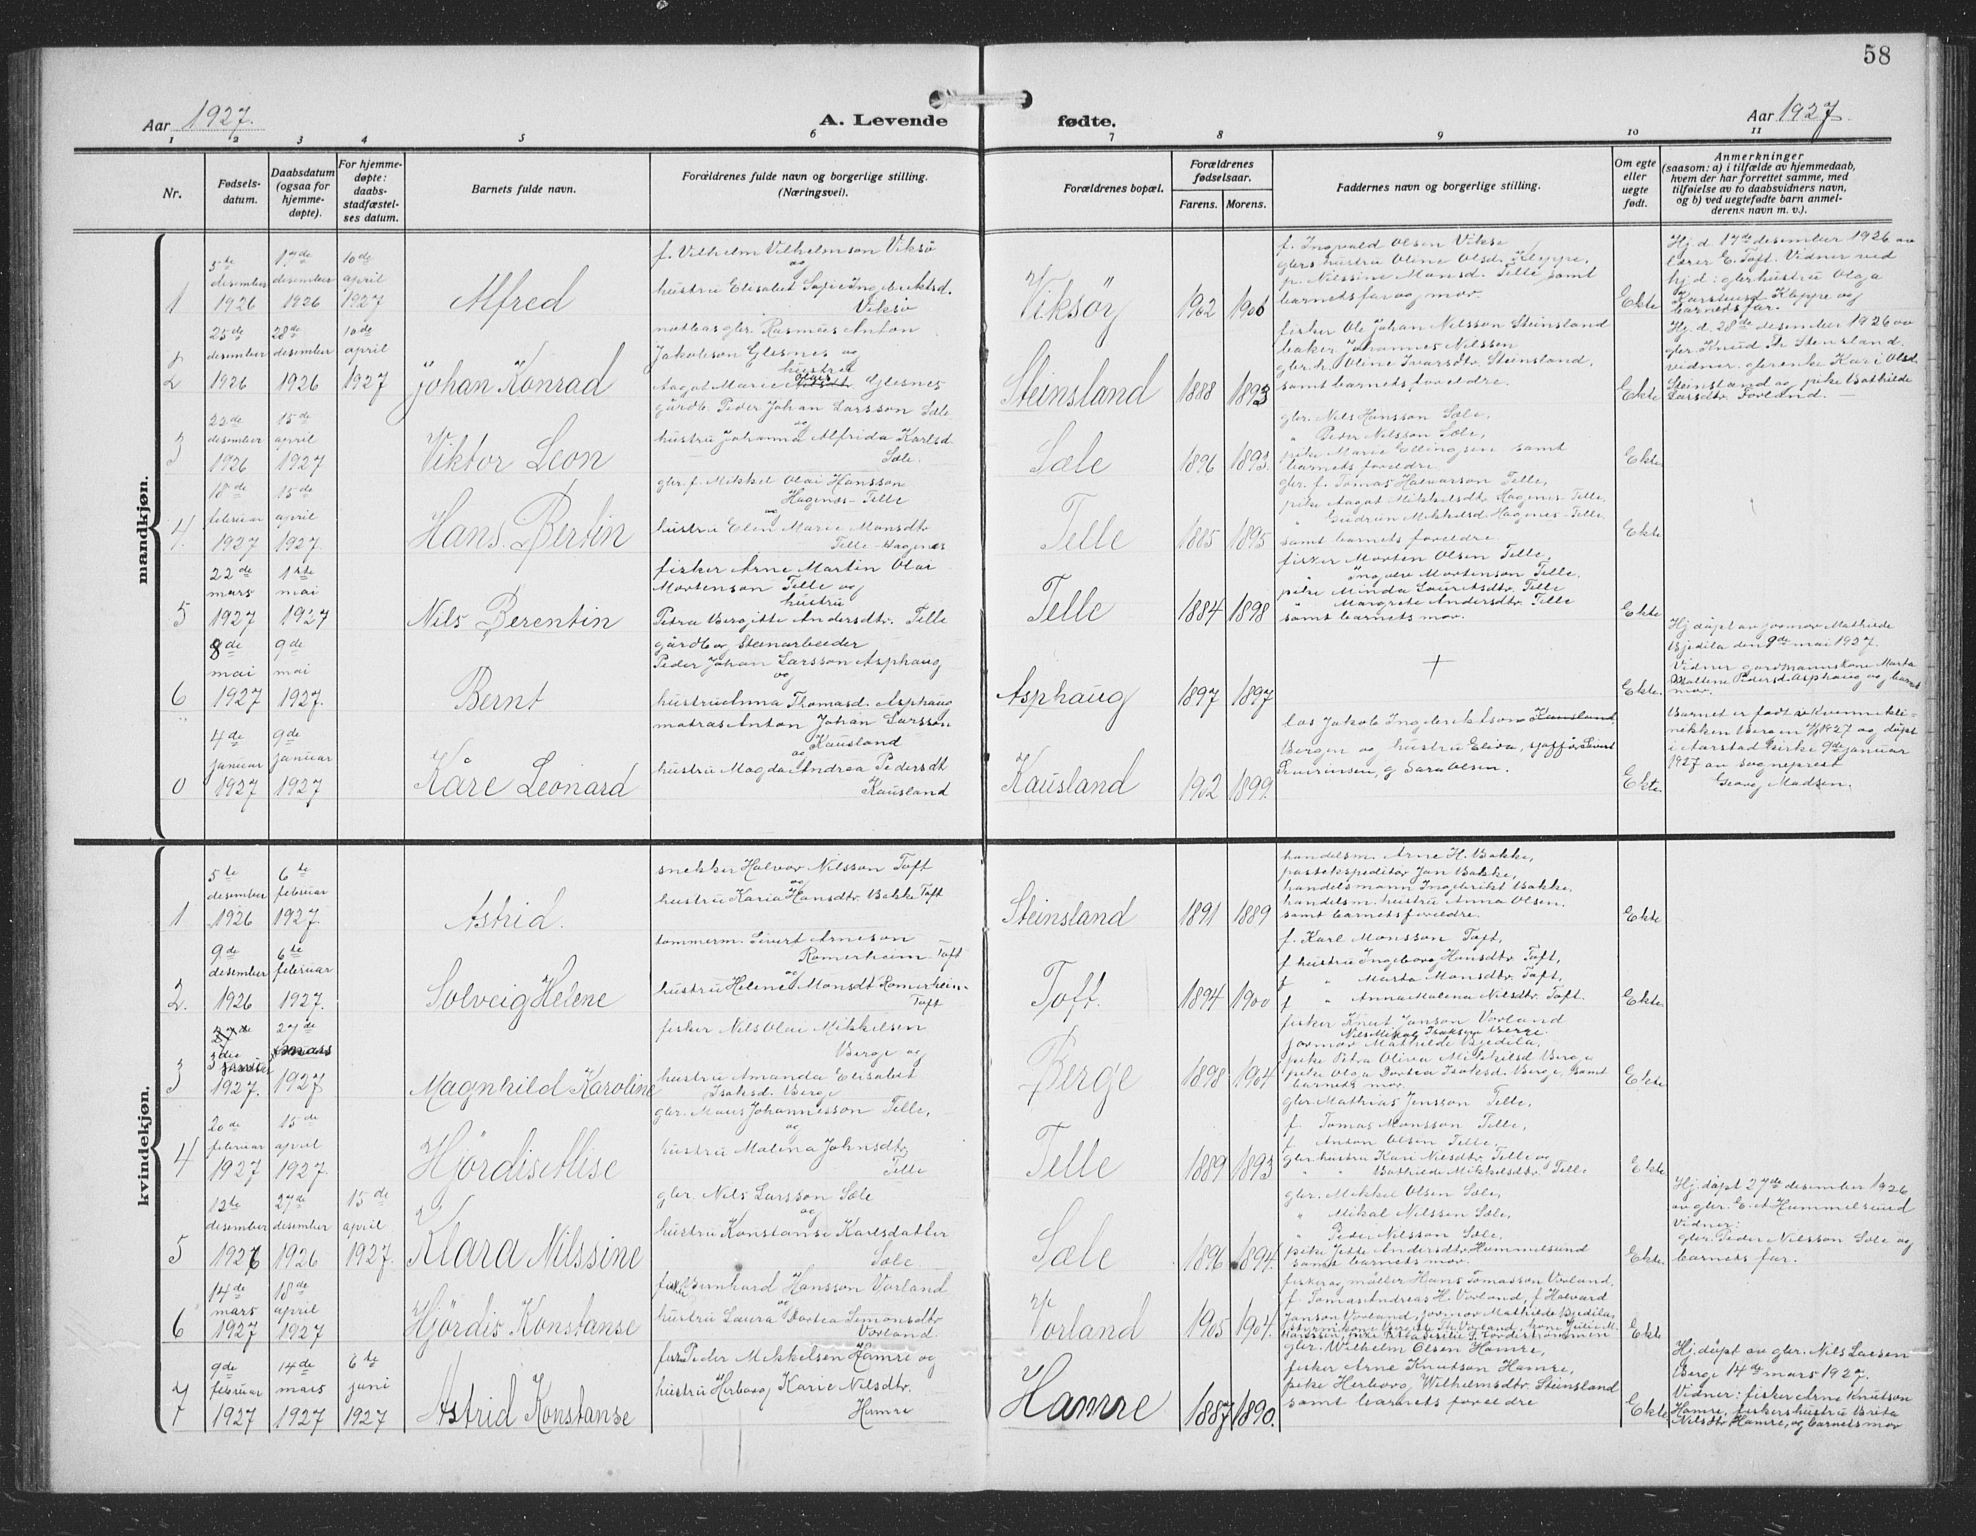 58
Aar 1927.
A. Levende fødte.
Aar 1927.
1 2 3 4 5 6 7 8 9 10 11
Nr.
Fødsels-
datum.
Daabsdatum
(ogsaa for
hjemme-
døpte).
For hjemme-
døpte:
daabs-
stadfæstel-
ses datum.
Barnets fulde navn.
Forældrenes fulde navn og borgerlige stilling.
(Næringsvei).
Forældrenes bopæl.
Forældrenes
fødselsaar.
Farens. Morens.
Faddernes navn og borgerlige stilling.
Om egte
eller
uegte
født.
Anmerkninger
(saasom: a) i tilfælde av hjemmedaab,
hvem der har forrettet samme, med
tilføielse av to daabsvidners navn,
og b) ved uegtefødte barn anmel-
derens navn m. v.).
mandkjøn.
1
5te
desember
1926
17de
desember
1926
10de
april
1927
Alfred
f. Vilhelm Vilhelmson Viksö
og
hustru Elisabet Sofie Ingebriktsd.
Viksö
Viksöy
1902
f. Ingvald Olsen Vikse
glers hustru Oline Olsd. Kleppe,
p. Nilssine Monsd. Telle samt
barnets far og mor.
Ekte
Hj. d. 17de desember 1926 av
lærer E. Toft. Vidner ved
hj d: gler. hustru Olga
Karstensd Kleppe og
barnets far.
2
25de
desember
1926
28de
desember
1926
10de
april
1927
Johan Konrad
notbas gler. Rasmus Anton
Jakobson Glesnes og
hustru
Aagot Marie Olai Glesnes
Steinsland
1888 1893
fisker Ole Johan Nilsson Steinsland
baker Johannes Nilssen
gler. h. Oline Ivarsdtr. Steinsland,
samt barnets foreldre.
Ekte
Hj. d. 28de desember 1926 av
gler. Knud Th. Stensland.
vidner, glerenke Kari Olsd
Steinsland og pike Bathilde
Larsdtr Forland.
3
22de
desember
1926
15de
april
1927
Viktor Leon
gårdb. Peder Johan Larsson Sæle
og
hustru Johanna Alfrida Karlsd.
Sæle.
Sæle
1896 1893.
gler. Nils Hansson Sæle,
" Peder Nilsson Sæle,
pike Marie Ellingsen samt
barnets foreldre.
Ekte
4
18de
februar
1927
15de
april
1927.
Hans Bertin
gler. f. Mikkel Olai Hansson
Hagenes-Telle
og
hustru Elen Marie Monsdtr
Telle-Hagenes
Telle
1885 1895
gler. f. Tomas Halvorson Telle,
pike Aagot Mikkelsdtr. Hagenes-Telle,
" Gudrun Mikkelsd. Hagenes-Telle.
samt barnets foreldre
Ekte
5
22de
mars
1927
1ste
mai
1927
Nils Berentin
fisker Arne Martin Olai
Mortenson Telle og
hustru
Petra Bergitte Andersdtr. Telle
Telle
1884 1898
fisker Morten Olsen Telle,
" Ingvor Mortenson Telle,
pike Minda Lauritsdtr Telle
" Margrete Andersdtr. Telle
samt barnets mor.
Ekte
6
8de
mai
1927
9de
mai
1927.
Bernt
gårdb og Steinarbeider
Peder Johan Larsson Asphaug
og
hustru Anna Thomasd. Asphaug
Asphaug
1897 1897
+
Ekte.
Hj. döpt av jormor Mathilde
Bjedila den 9de mai 1927.
Vidner gardmannskone Marta
Maltene Pedersd. Asphaug og barnets
mor.
0
4de
januar
1927
9de
januar
1927
Kåre Leonard
matros Anton Johan Larsson
Kausland
og
hustru Magda Andrea Pedersdt
Kausland
Kausland
1902 1899.
los Jakob Ingebriktson Kausland,
Bergen og hustru Eliva, sjafför Sivert
Severinsen, g. Sara Olsen.
Ekte.
Barnet er født i Kvinnekli-
nekken Bergen 4/1 1927 og döpt
i Aarstad Kirke 9de januar
1927 av sogneprest
Georg Madsen.
kvindekjøn.
1
5te
desember
1926
6te
februar
1927.
Astrid.
snekker Halvor Nilsson Toft
og
hustru Karia Hansdtr. Bakke Toft
Steinsland
1891 1889
handelsm. Arne H. Bakke,
postekspeditör Jan Bakke,
handelsmann Ingebrikt Bakke.
handelsm. hustru Anna Olsen.
samt barnets foreldre.
Ekte
2.
9de
desember
1926
6te
februar
1927.
Solveig Helene
tømmerm. Sivert Arneson
Romerheim-Toft
og
hustru Helene Monsdt Romerheim-
Toft
Toft.
1894 1900
f. Karl Monsson Toft,
f hustru Ingeborg Hansdtr. Toft,
f " Marta Monsdtr. Toft,
f " Anna Malena Nilsdtr. Toft.
Ekte.
3
3die
januar
1927.
27de
mars
1927
Magnhild Karoline
fisker Nils Olai Mikkelsen
Berge og
hustru Amanda Elisabet
Isaksd. Berge
Berge
1898 1904
fisker Knut Janson Vorland
Nils Mikal Isaksen Berge.
jormor Mathilde Bjedila,
pike Petra Oliva Mikkelsd Berge
pike Olga Dortea Isaksd. Berge, samt
barnets mor.
Ekte
4
20de
februar
1927
15de
april
1927.
Hjördis Alise
gler. Mons Johannesson Telle,
og
hustru Malena Johnsdtr
Telle
Telle
1889 1893
gler. Mathias Jensson Telle,
f. Tomas Monsson Telle,
f. Anton Olsen Telle,
gler hustru Kari Nilsdtr. Telle og
" " Bathilde Mikkelsdtr. Telle
Ekte
5
12te
desember
1926
27de
desember
1926
15de
april
1927.
Klara Nilssine
gler. Nils Larsson Sæle
og
hustru Konstanse Karlsdatter
Sæle.
Sæle
1896 1894.
gler. Mikkel Olsen Sæle,
" Mikal Nilssen Sæle,
" Peder Nilsson Sæle,
pike Jette Andersdtr. Hummelsund
samt barnets mor.
Ekte.
Hj. döpt 27de desember 1926
av gler. E. A Hummelsund
Vidner:
gler. Peder Nilsson Sæle og
barnets far.
6
14de
mars
1927
18de
april
1927
Hjördis Konstanse
Bernhard Hansson Vorland
og
hustru Laura Dortea Simonsdtr
Vorland.
Vorland
1905 1904.
fisker og møller Hans Tomasson Vorland,
f Tomas Andreas H. Vorland, f Halvard
Janson Vorland, jormor Mathilde Bjedila,
Ekte
7
9de
februar
1927
14de
mars
1927
6te
juni
1927
Astrid Konstanse
Peder Mikkelsen Hamre og
hustru Herborg Karie Nilsdtr.
Hamre
Hamre
1887 1890.
gler. Wilhelm Olsen Hamre,
fisker Arne Knutson Hamre,
pike Herborg Wilhelmsdtr. Steinsland
samt barnets foreldre
Ekte
Hj. döpt av gler. Nils Larsen
Berge 14de mars 1927.
Vidner: fisker Arne Knutson
Hamre, fiskers hustru Brita
Nilsdtr Hamre, og barnets mor